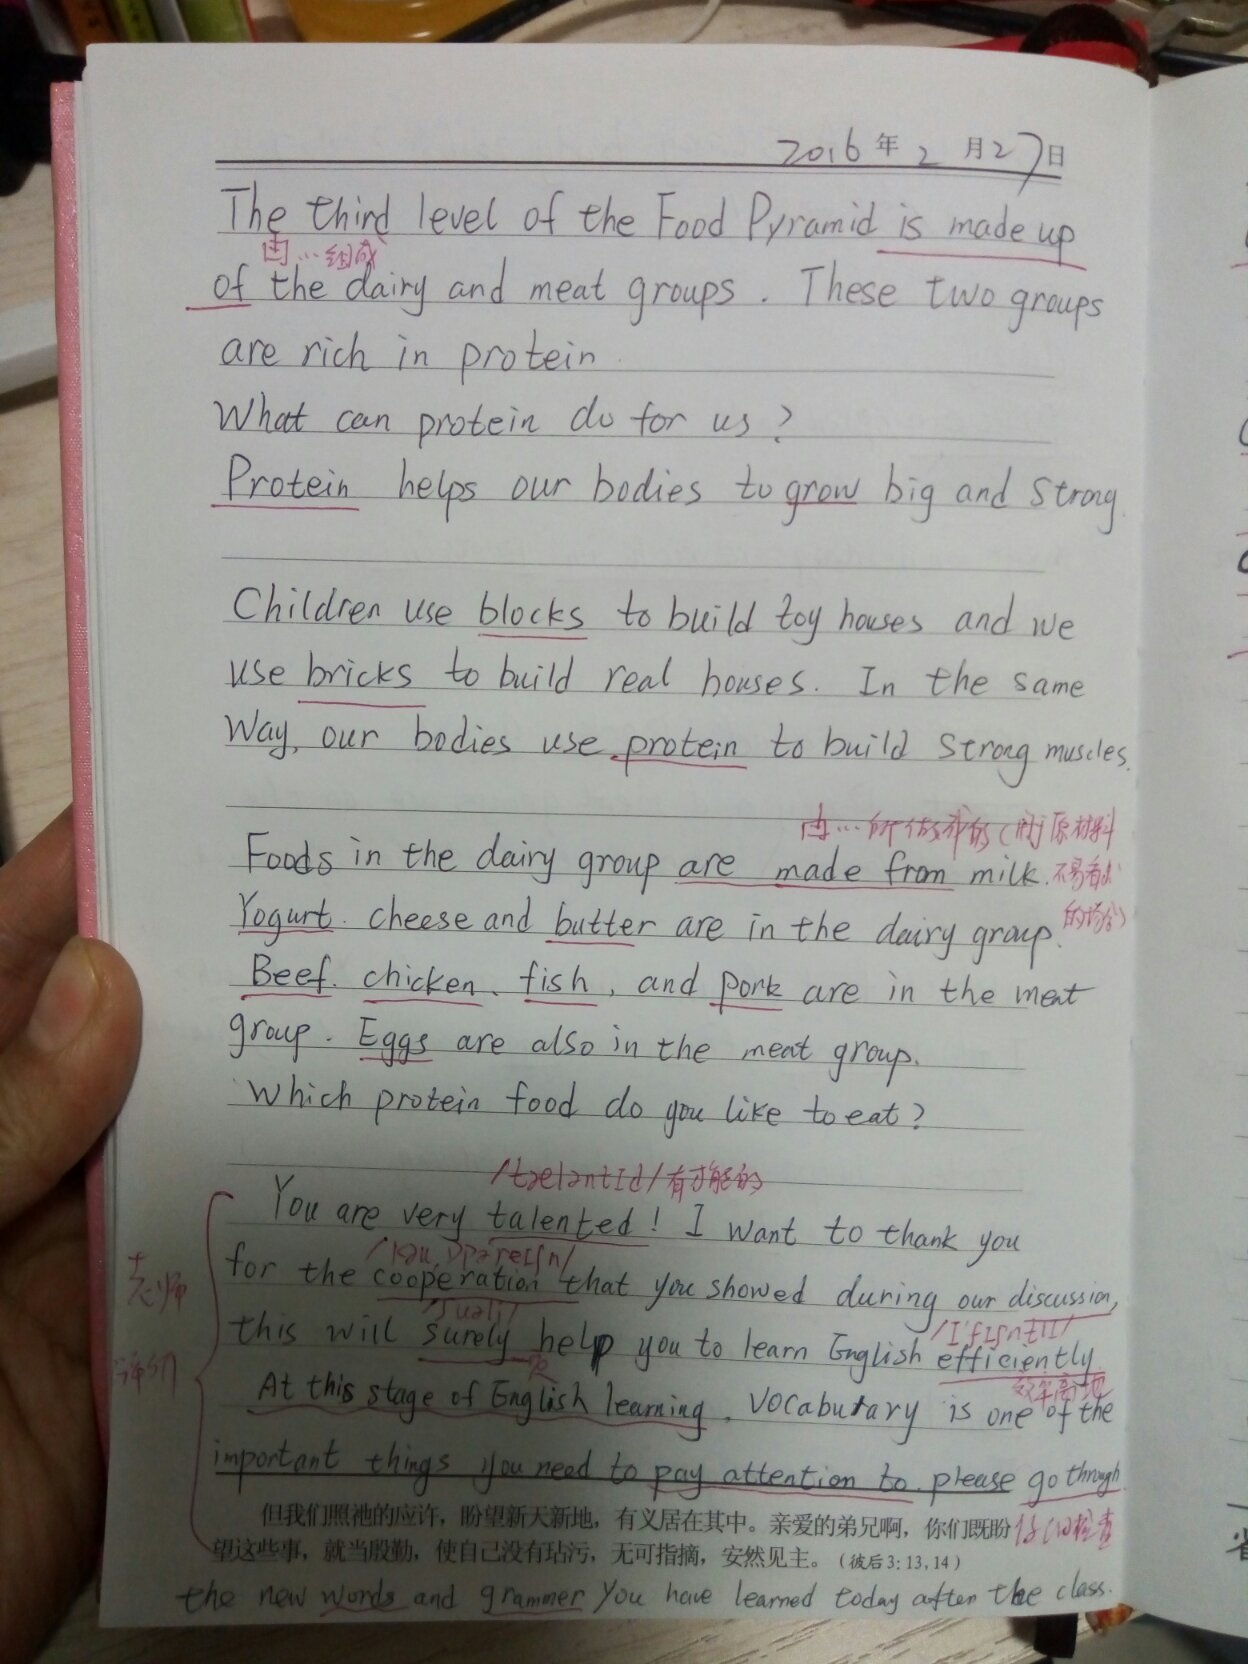 2016年2月27日
The third level of the Food Pyramid is made up
由…组成
of the dairy and meat groups. These two groups
are rich in protein.
What can protein do for us?
Protein helps our bodies to grow big and strong.
Children use blocks to build toy houses and we
use bricks to build real houses. In the same
way, our bodies use protein to build strong muscles.
由…所做成的(用于原材料
Foods in the dairy group are made from milk.
不易看出
Yogurt. cheese and butter are in the dairy group.
的场合)
Beef. chicken. fish, and pork are in the meat
group. Eggs are also in the meat group.
Which protein food do you like to eat?
/tæləntId/有才能的
You are very talented! I want to thank you
for the cooperation that you showed during our discussion,
this will surely help you to learn English efficiently
效率高地
At this stage of English learning, vocabulary is one of the
important things you need to pay attention to. please go through
老师
评价
但我们照祂的应许，盼望新天新地，有义居在其中。亲爱的弟兄啊，你们既盼
望这些事，就当殷勤，使自己没有玷污，无可指摘，安然见主。（彼后3:13,14）
the new words and grammer you have learned today after the class.